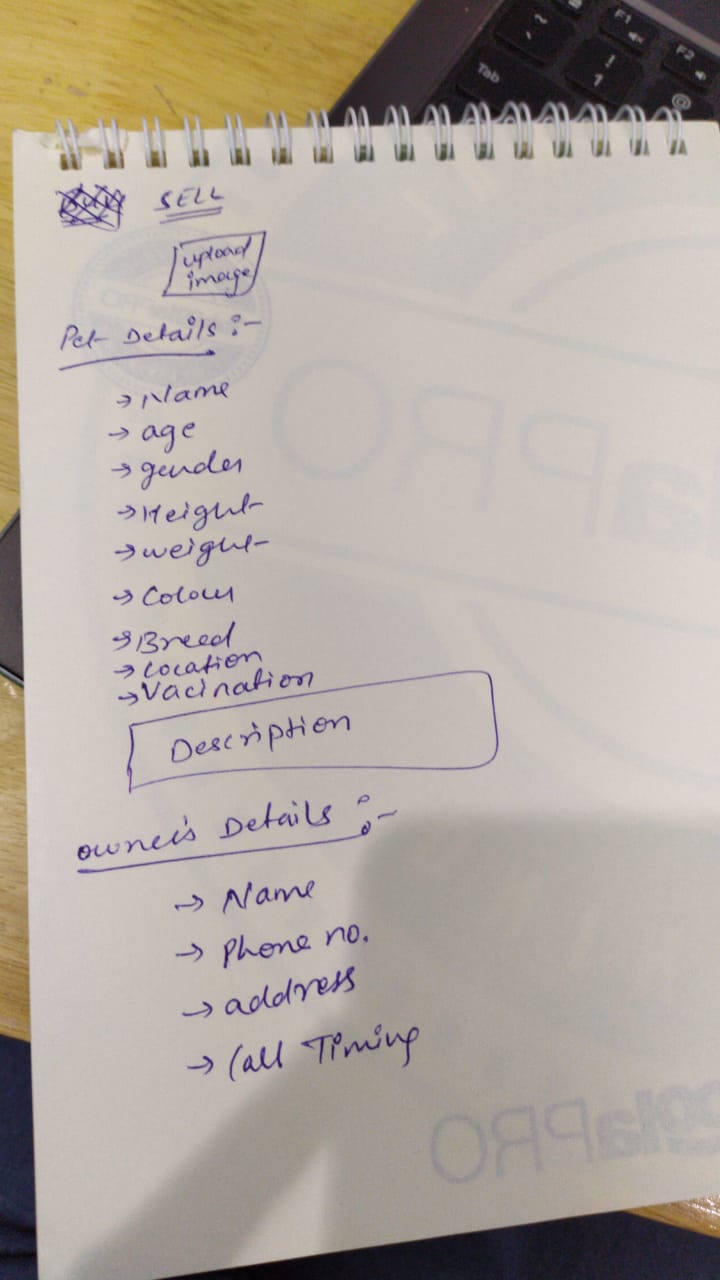 SELL
upload
image
Pet Details :-
→ Name
→ age
→ gender
→ Height
→ weight
→ Colour
→ Breed
→ Location
→ Vacination
Description
owner's Details :-
→ Name
→ Phone no.
→ address
→ Call Timing
Tab
~
!
1
F1
F2
PRO
PRO